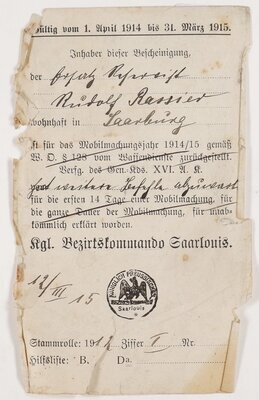 Gültig vom 1. April 1914 bis 31. März 1915.
Inhaber dieser Bescheinigung,
der Ersatz Reservist
Rudolf Rassier
wohnhaft in Saarburg
ist für das Mobilmachungsjahr 1914/15 gemäß
W. O. § 128 vom Waffendienste zurückgestellt.
Verfg. des Gen. Kds. XVI. A. K.
hat weitere Befehle abzuwarten
für die ersten 14 Tage einer Mobilmachung,
für die ganze Dauer der Mobilmachung, für unab-
kömmlich erklärt worden.
Kgl. Bezirkskommando Saarlouis.
12/III 15
KÖNIGLICH PREUSSISCHES
Saarlouis
Stammrolle: 1912 Ziffer I Nr.
Hilfsliste: B. Da: